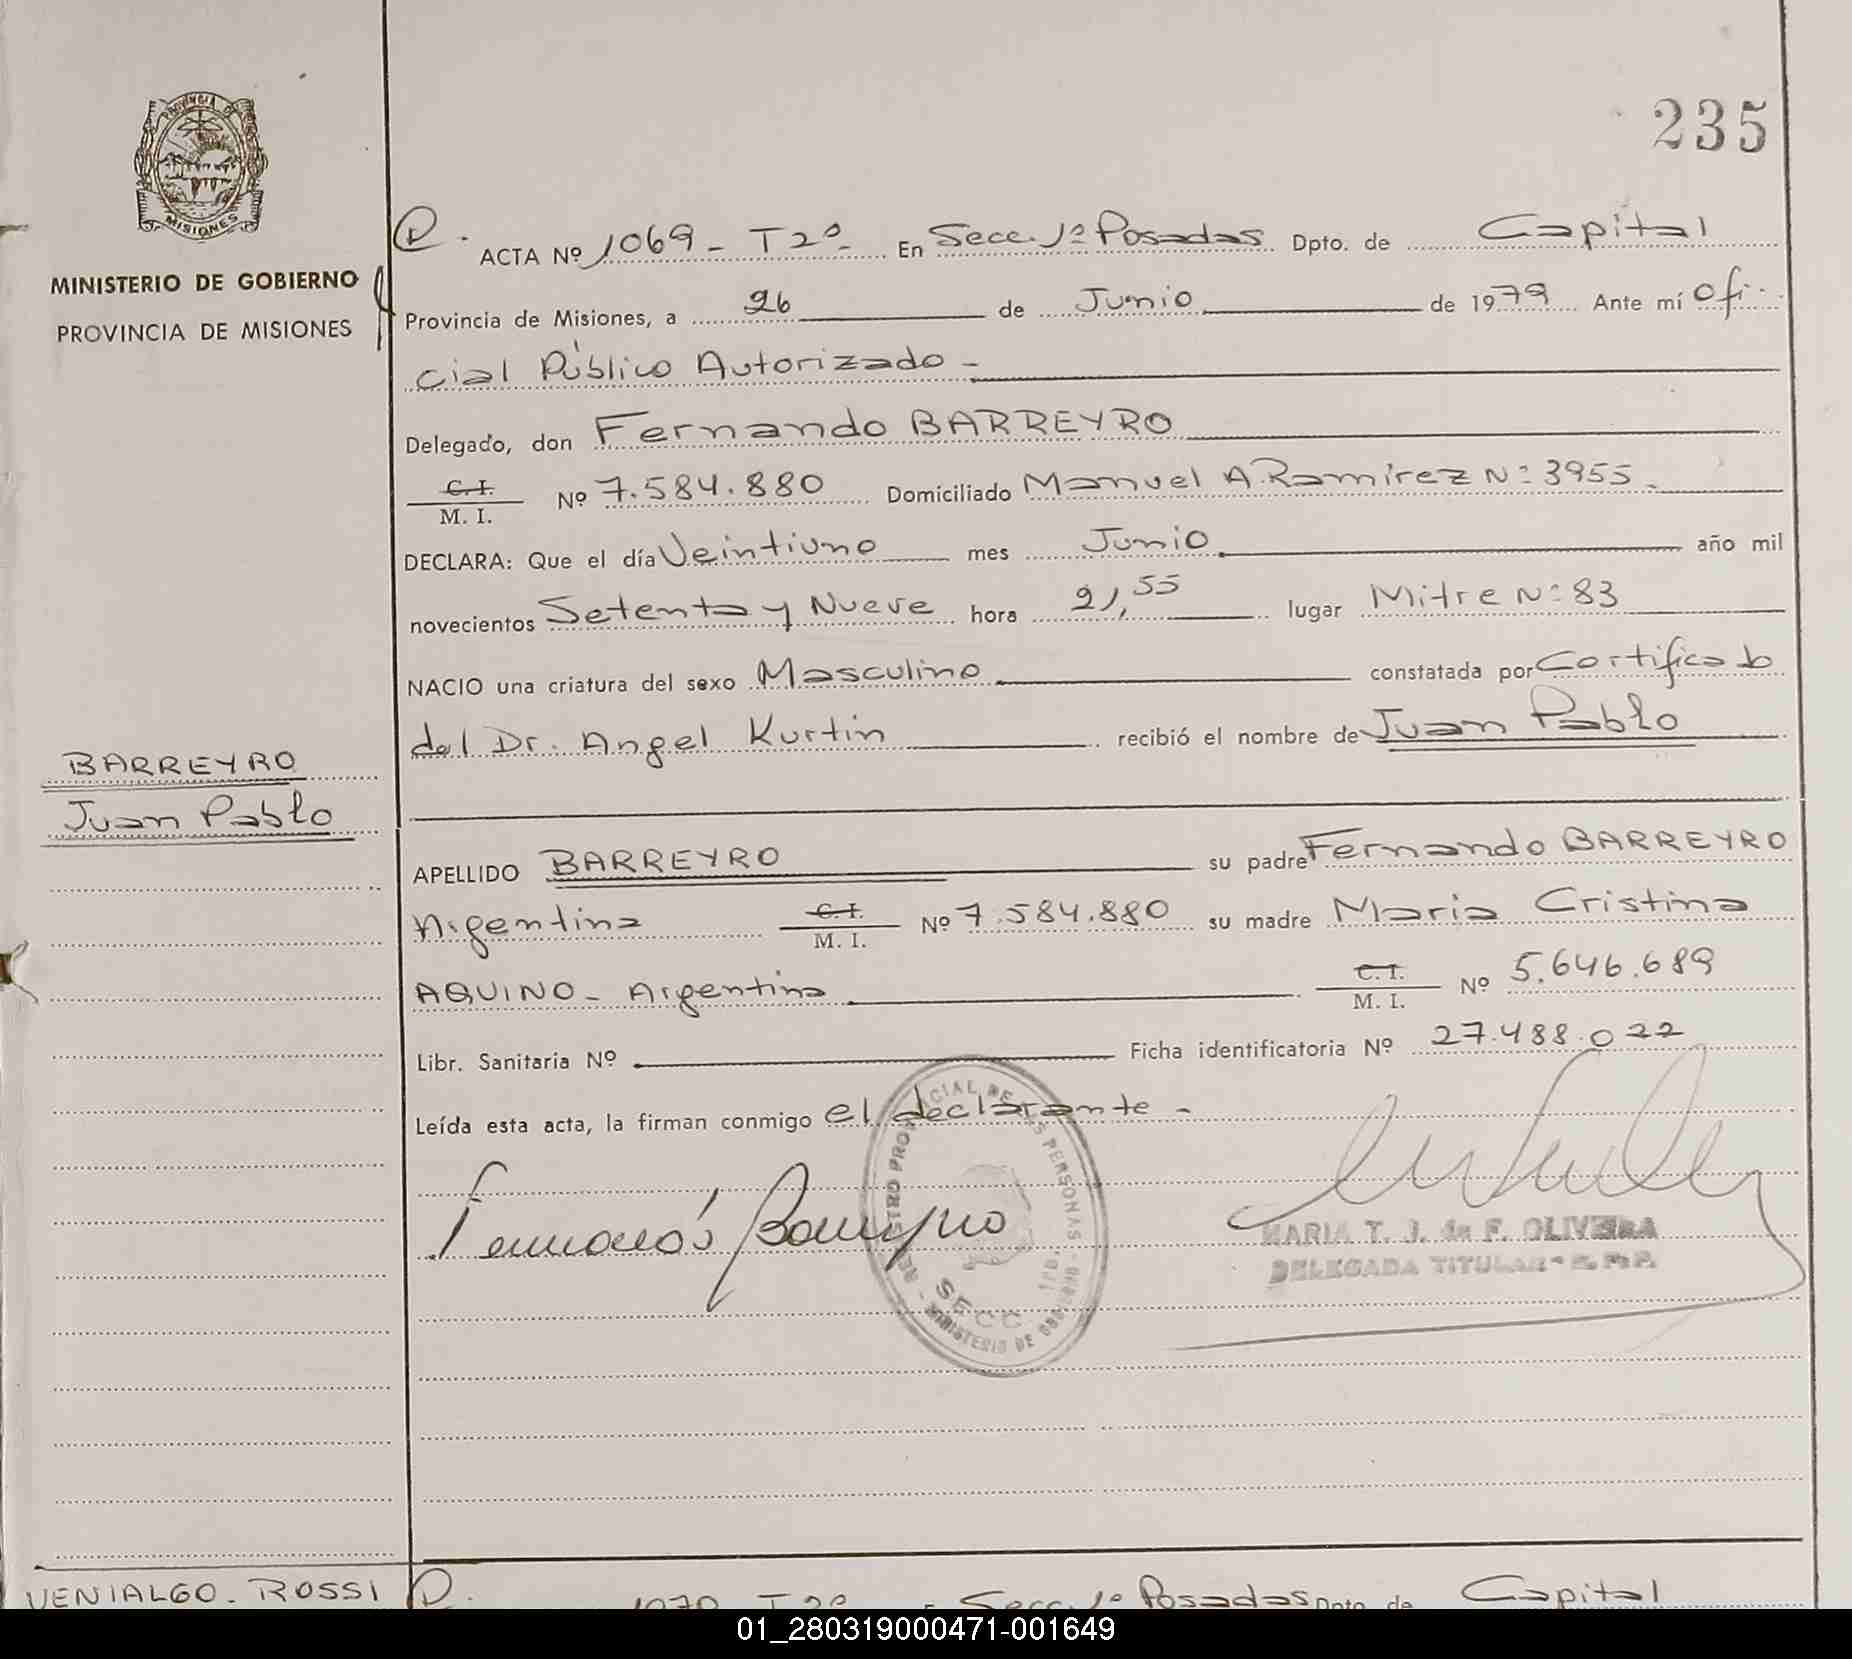 235
PROVINCIA DE
MISIONES
MINISTERIO DE GOBIERNO
PROVINCIA DE MISIONES
ACTA Nº 1069 - T2º- En Secc. 1º Posadas Dpto. de Capital
Provincia de Misiones, a 26 de Junio de 1979 Ante mí Ofi-
cial Público Autorizado -
Delegado, don Fernando BARREYRO
C.I. / M. I. Nº 7.584.880 Domiciliado Manuel A. Ramirez Nº 3955.
DECLARA: Que el día Veintiuno mes Junio año mil
novecientos Setenta y Nueve hora 21,55 lugar Mitre Nº 83
NACIO una criatura del sexo Masculino constatada por Certificado
del Dr. Angel Kurtin recibió el nombre de Juan Pablo
BARREYRO
Juan Pablo
APELLIDO BARREYRO su padre Fernando BARREYRO
Argentina C.I. / M. I. Nº 7.584.880 su madre Maria Cristina
AQUINO - Argentina C.I. / M. I. Nº 5.646.689
Libr. Sanitaria Nº Ficha identificatoria Nº 27.488.022
Leída esta acta, la firman conmigo el declarante -
Fernando Barreyro
REGISTRO PROVINCIAL DE LAS PERSONAS - MINISTERIO DE GOBIERNO -
SECC.
MARIA T. J. de F. OLIVEIRA
DELEGADA TITULAR - R. P. P.
VENIALGO - ROSSI
1070 T2º En Secc. 1º Posadas Dpto. de Capital
01_280319000471-001649